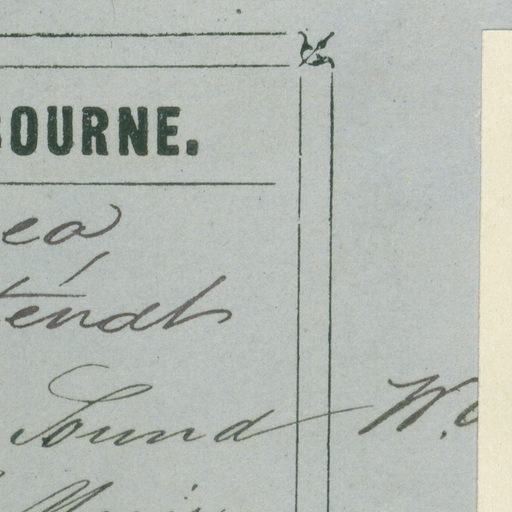 BOURNE.
ea
tendt
Sound W.